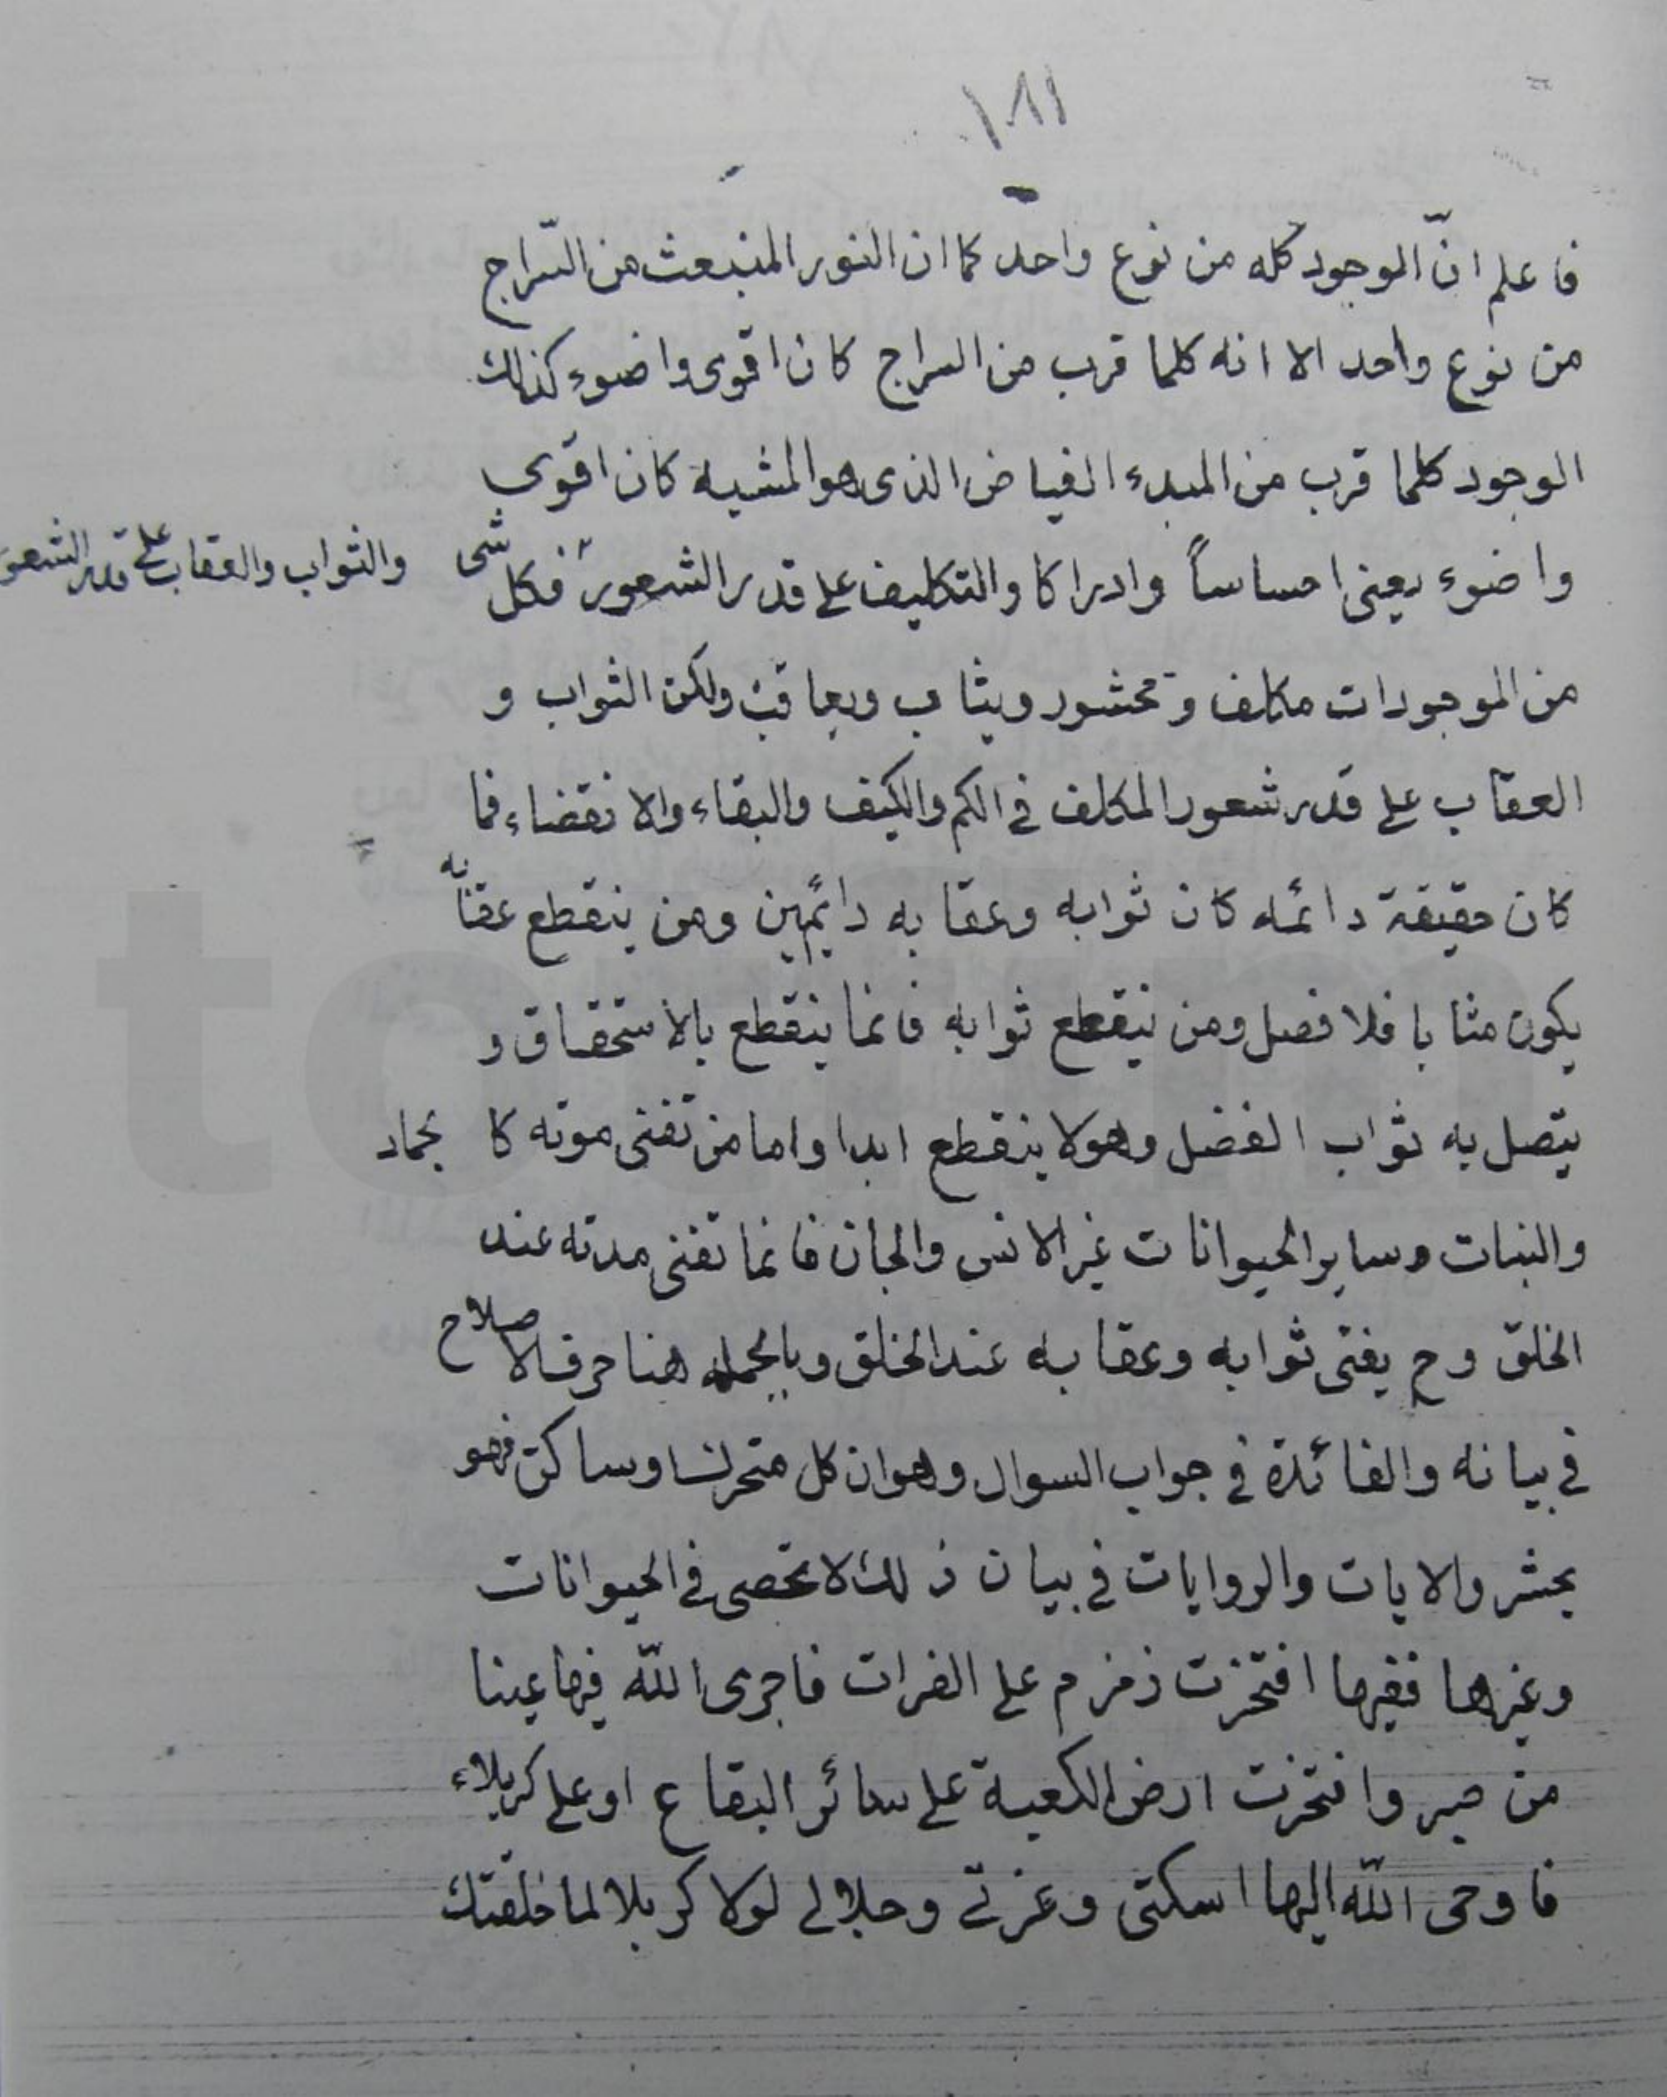 ١٨١
فاعلم انّ الوجود كله من نوع واحد كما ان النور المنبعث من السّراج
من نوع واحد الا انه كلما قرب من السراج كان اقوى واضوء كذلك
الوجود كلما قرب من المبدء الفياض الذى هو المشيه كان اقوى
واضوء يعنى احساساً وادراكا والتكليف على قدر الشعور فكل شى
والثواب والعقاب على قدر الشعور
من الموجودات مكلف ومحشور ويثاب ويعاقب ولكن الثواب و
العقاب على قدر شعور المكلف فى الكم والكيف والبقاء والانقضاء فما
كان حقيقة دائمه كان ثوابه وعقابه دائمين ومن ينقطع عقابه
يكون مثابا فلا فصل ومن ينقطع ثوابه فانما ينقطع بالاستحقاق و
يتصل به ثواب الفضل وهو لا ينقطع ابدا واما من تفنى موته كا لجماد
والنبات وساير الحيوانات غير الانس والجان فانما تفنى مدته عند
الخلق وح يفنى ثوابه وعقابه عند الخلق وبالجمله هنا حرف لا صلاح
فى بيانه والفائدة فى جواب السوال وهو ان كل متحرك وساكن فهو
يحشر والايات والروايات فى بيان ذلك لا تحصى فى الحيوانات
وغيرها ففيها افتخرت زمزم على الفرات فاجرى الله فيها عينا
من صبر وافتخرت ارض الكعبة على سائر البقاع او على كربلاء
فاوحى الله اليها اسكتى وعزتى وجلالى لولا كربلا لما خلقتك